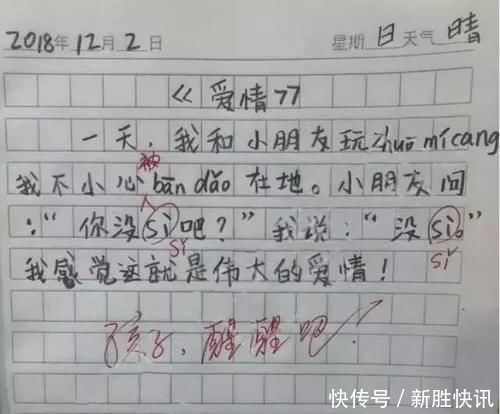 2018年12月2日 星期日 天气晴
《爱情》
一天,我和小朋友玩zhuō mícang
我不小心被bān dǎo在地。小朋友问
:“你没sǐ吧?”我说:“没sǐ。”
sǐ sǐ
我感觉这就是伟大的爱情!
孩子,醒醒吧!
快传号/新胜快讯